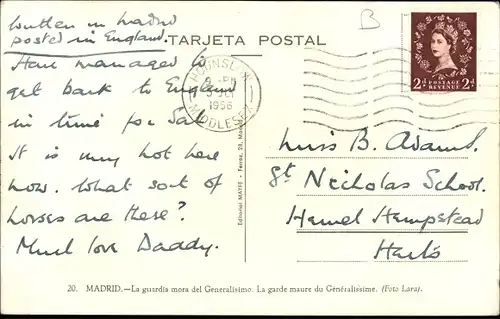 written in Madrid
posted in England.
TARJETA POSTAL
Have managed to
get back to England
in time for Sat
It is very hot here
now. What sort of
horses are there?
Much love Daddy.
B
HOUNSLOW
1956
MIDDLESEX
POSTAGE
REVENUE
2d 2d
Miss B. Adams.
St Nicholas School.
Hemel Hempstead
Herts
20. MADRID.—La guardia mora del Generalísimo. La garde maure du Généralissime. (Foto Lara).